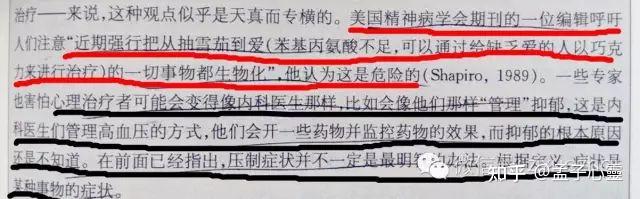 治疗——来说,这种观点似乎是天真而专横的。美国精神病学会期刊的一位编辑呼吁
人们注意“近期强行把从抽雪茄到爱(苯基丙氨酸不足,可以通过给缺乏爱的人以巧克
力来进行治疗)的一切事物都生物化”,他认为这是危险的(Shapiro, 1989)。一些专家
也害怕心理治疗者可能会变得像内科医生那样,比如会像他们那样“管理”抑郁,这是内
科医生们管理高血压的方式,他们会开一些药物并监控药物的效果,而抑郁的根本原因
还是不知道。在前面已经指出,压制症状并不一定是最明智的办法。根据定义,症状是
某种事物的症状。
知乎 @孟子心灵